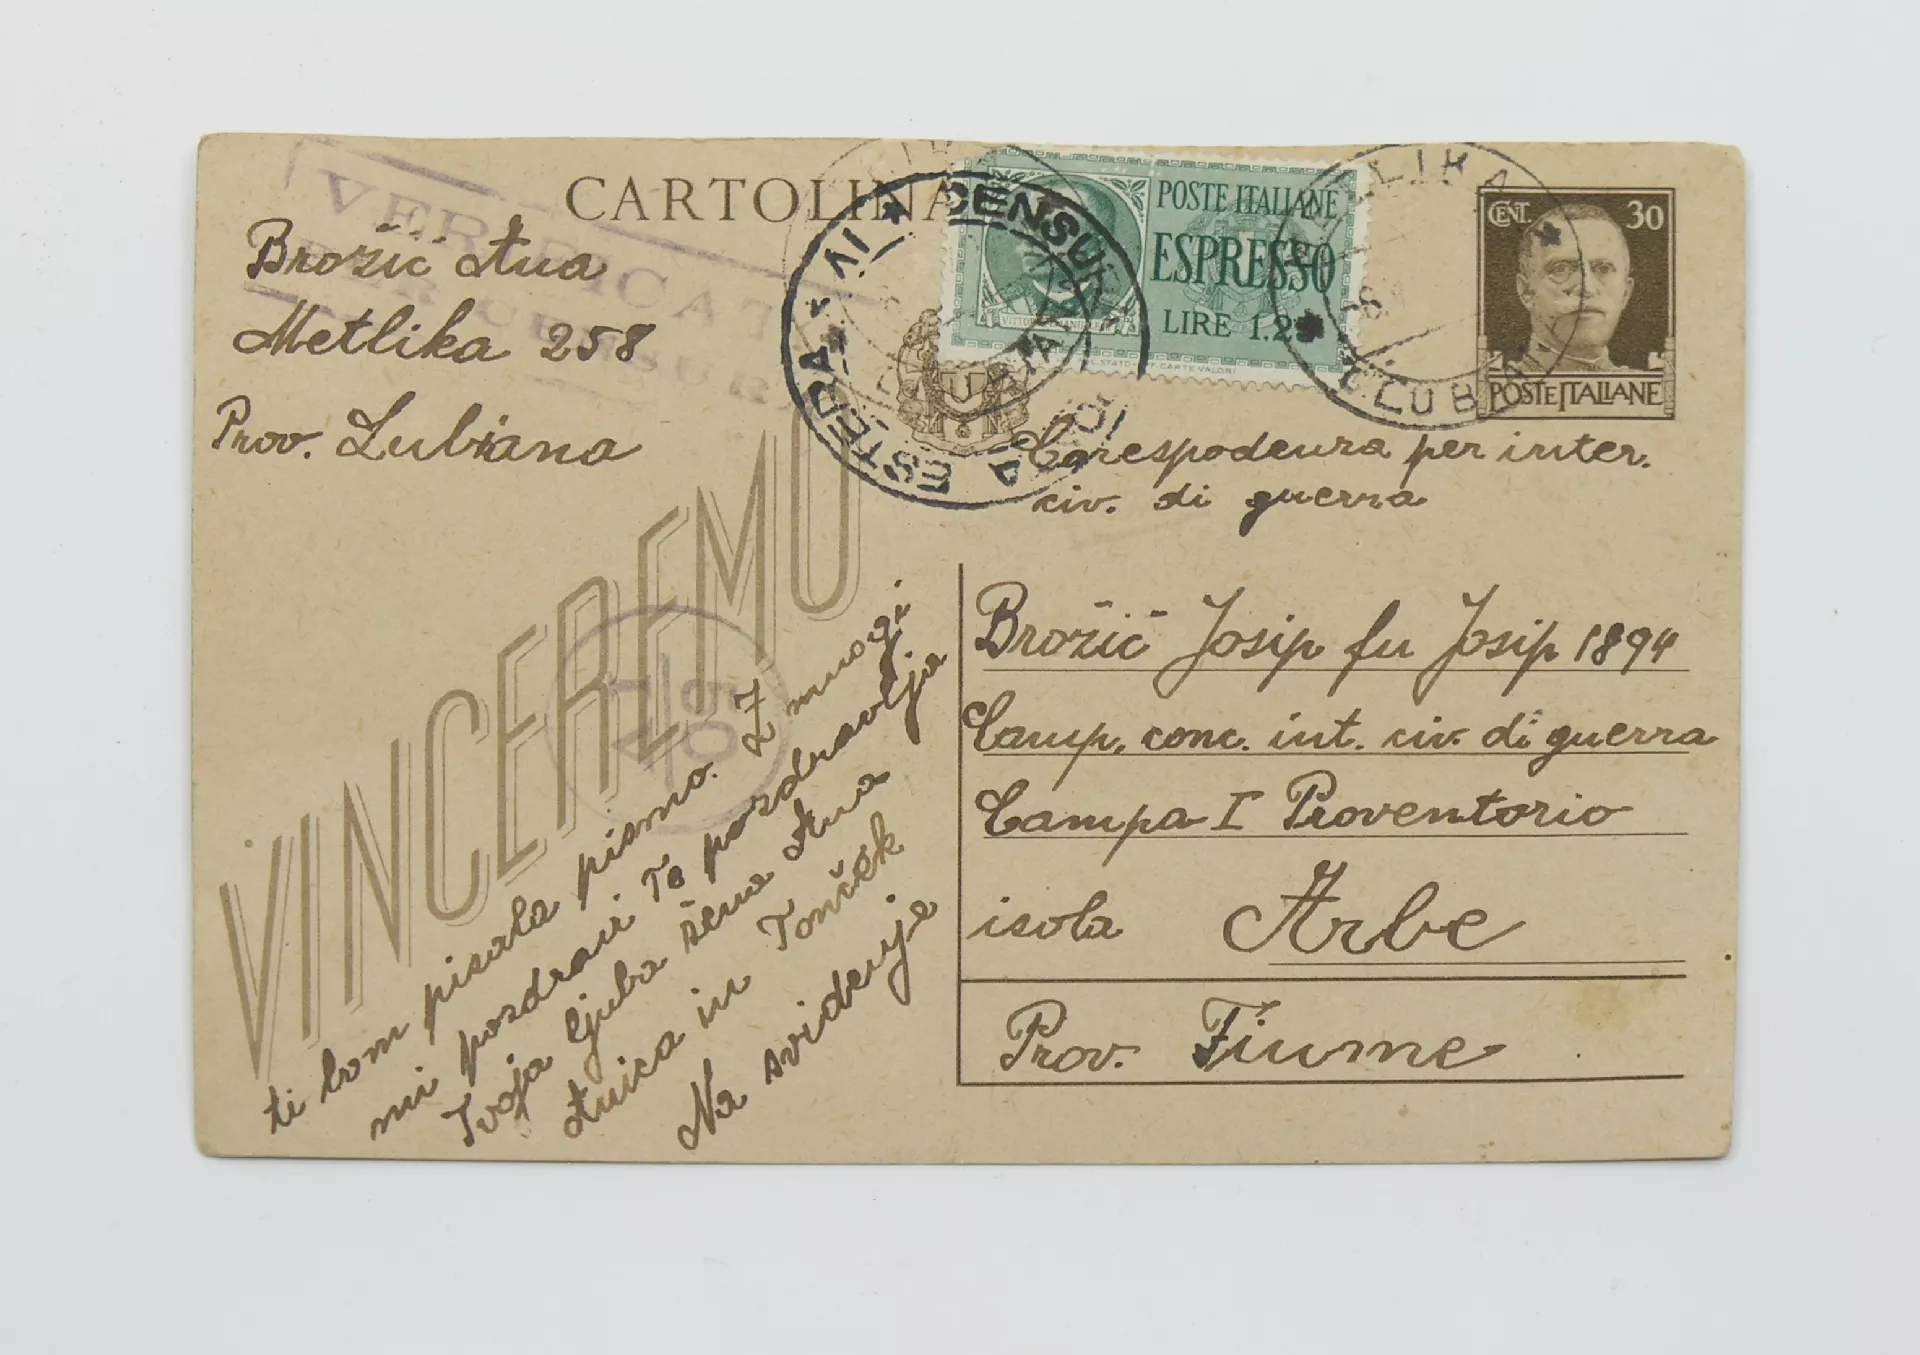 CARTOLINA
VERIFICAT
PER CENSURA
Brožić Ana
Metlika 258
Prov. Lubiana
CENSU
ESTERA
POSTE ITALIANE
ESPRESSO
LIRE 1.25
METLIKA
LUBIANA
CENT. 30
POSTE ITALIANE
Corespodeura per inter.
civ. di guerra
VINCEREMO
Brožić Josip fu Josip 1894
Camp. conc. int. civ. di guerra
Campa I Proventorio
isola Arbe
Prov. Fiume
ti bom pisala pismo. Z mnogi
mi pozdravi Te pozdravlja
Tvoja ljuba žena Ana
Anica in Tonček
Na svidenje